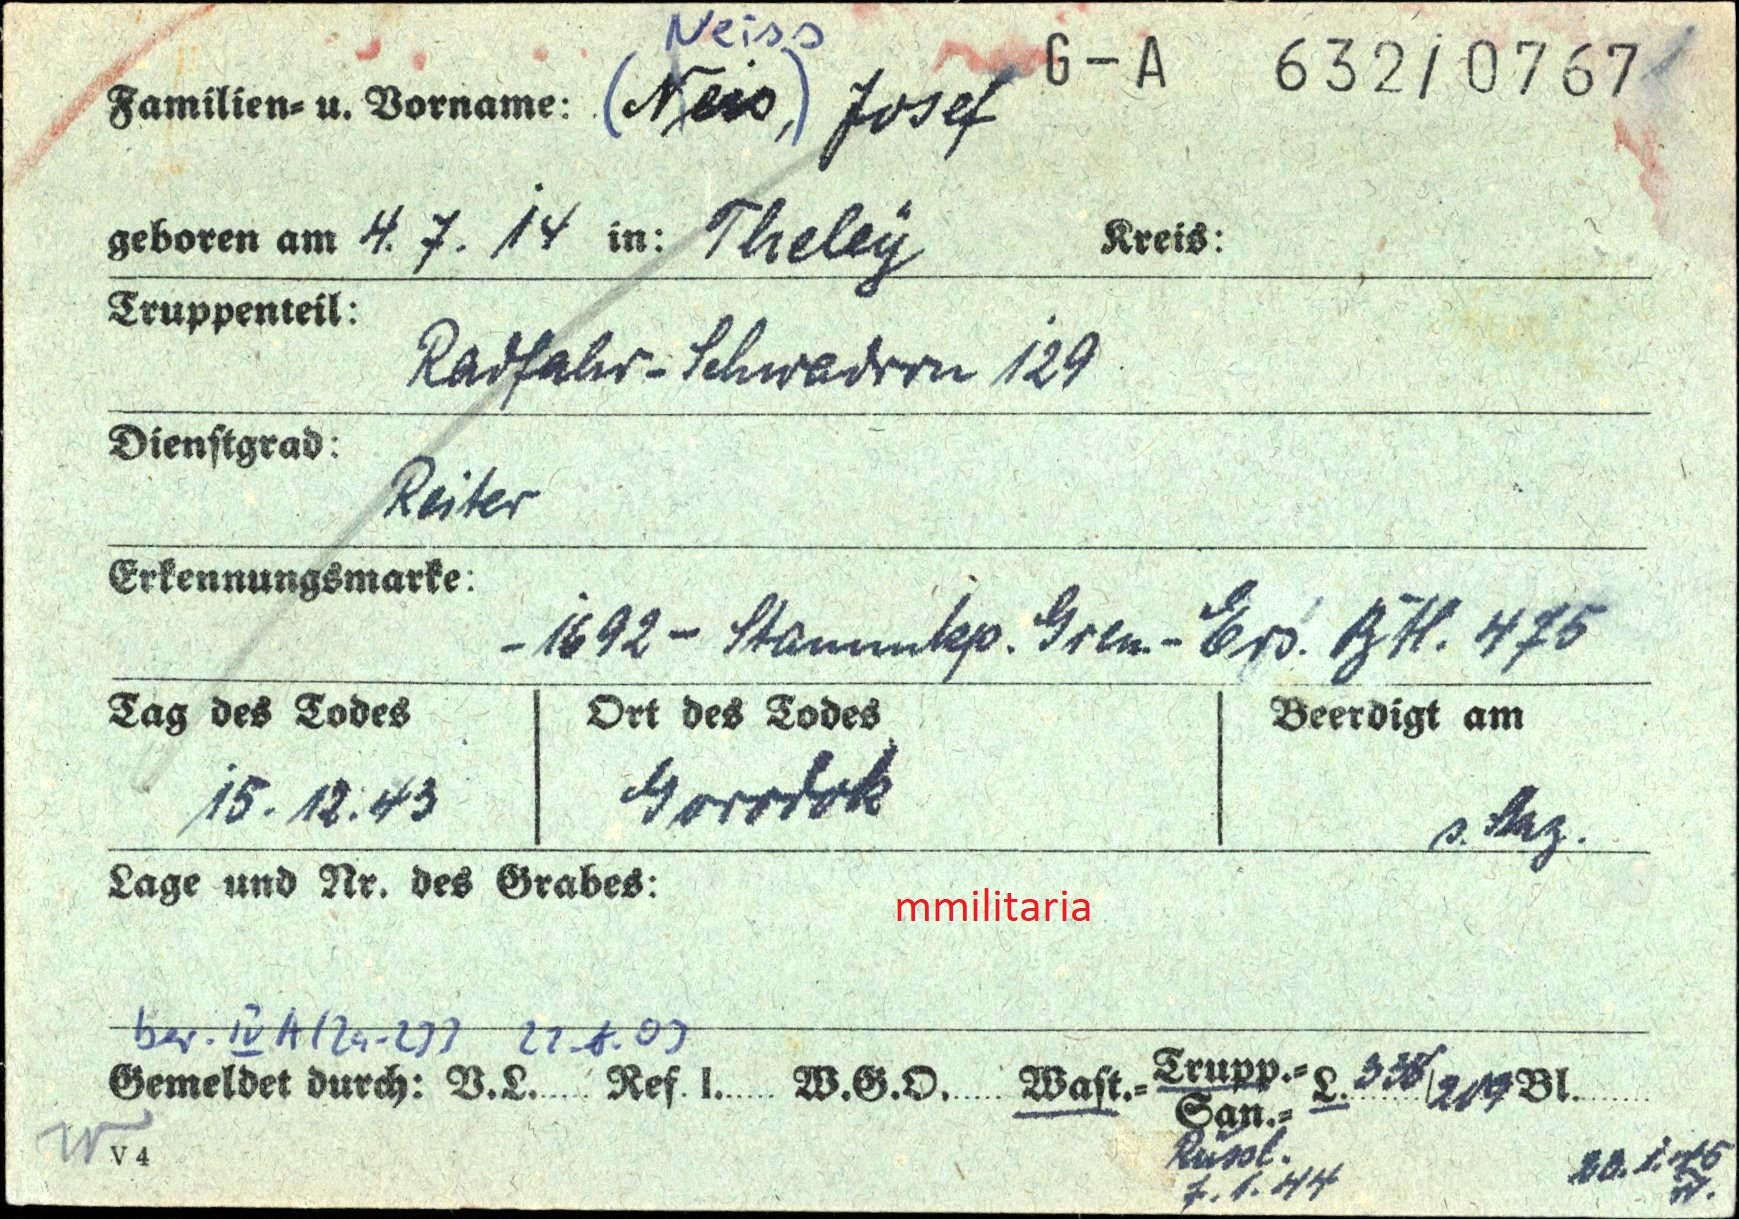 Neiss
G-A 632/0767
Familien- u. Vorname: (Neis,) Josef
geboren am 4. 7. 14 in: Theley Kreis:
Truppenteil:
Radfahr-Schwadron 129
Dienstgrad:
Reiter
Erkennungsmarke:
-1692- Stammkp. Gren.-Ers. Btl. 475
Tag des Todes Ort des Todes Beerdigt am
15. 12. 43 Gorodok
Lage und Nr. des Grabes:
mmilitaria
ber. IV A
Gemeldet durch: V.L..... Ref. I..... W.G.O..... Wast.- Trupp.- L. Bl.......
San.-
V 4
7. 1. 44